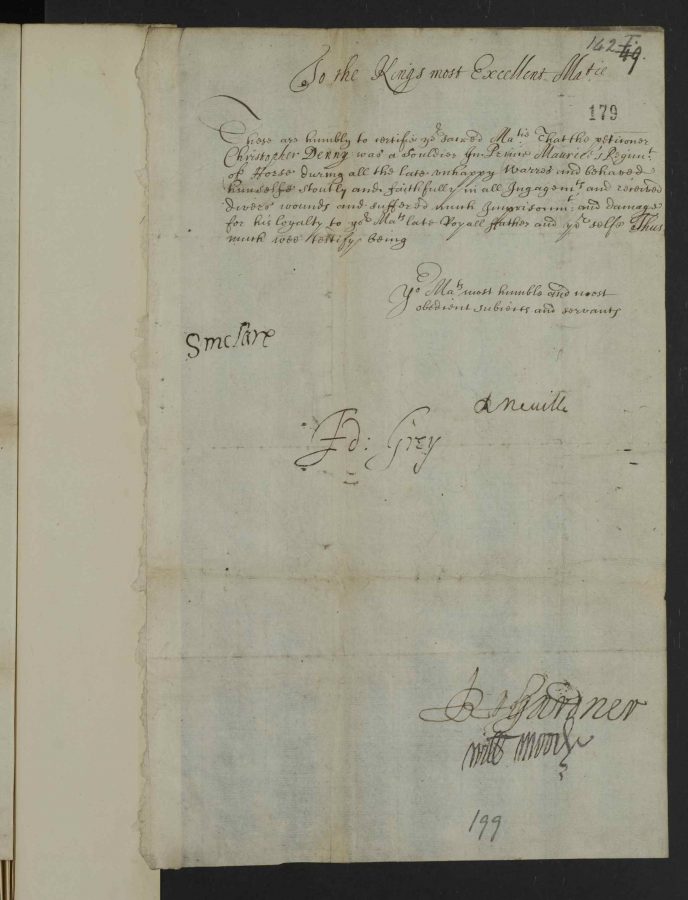 142 I.
49.
To the Kings most Excellent Ma.tie
179
These are humbly to certifie yr sacred Ma:tie That the petitioner
Christopher Denny was a Souldier In Prince Maurice's Regimt.
of Horse during all the late unhappy Warres and behaved
himselfe stoutly and faithfully in all Ingagemts and received
divers wounds and suffered much Imprisonmt: and damage
for his loyalty to yor Mats late Royall ffather and yr selfe Thus
much wee testifye being
Yor Mats most humble and most
obedient subiects and servants
Neville
Ed: Grey
Gardner
will moore
199